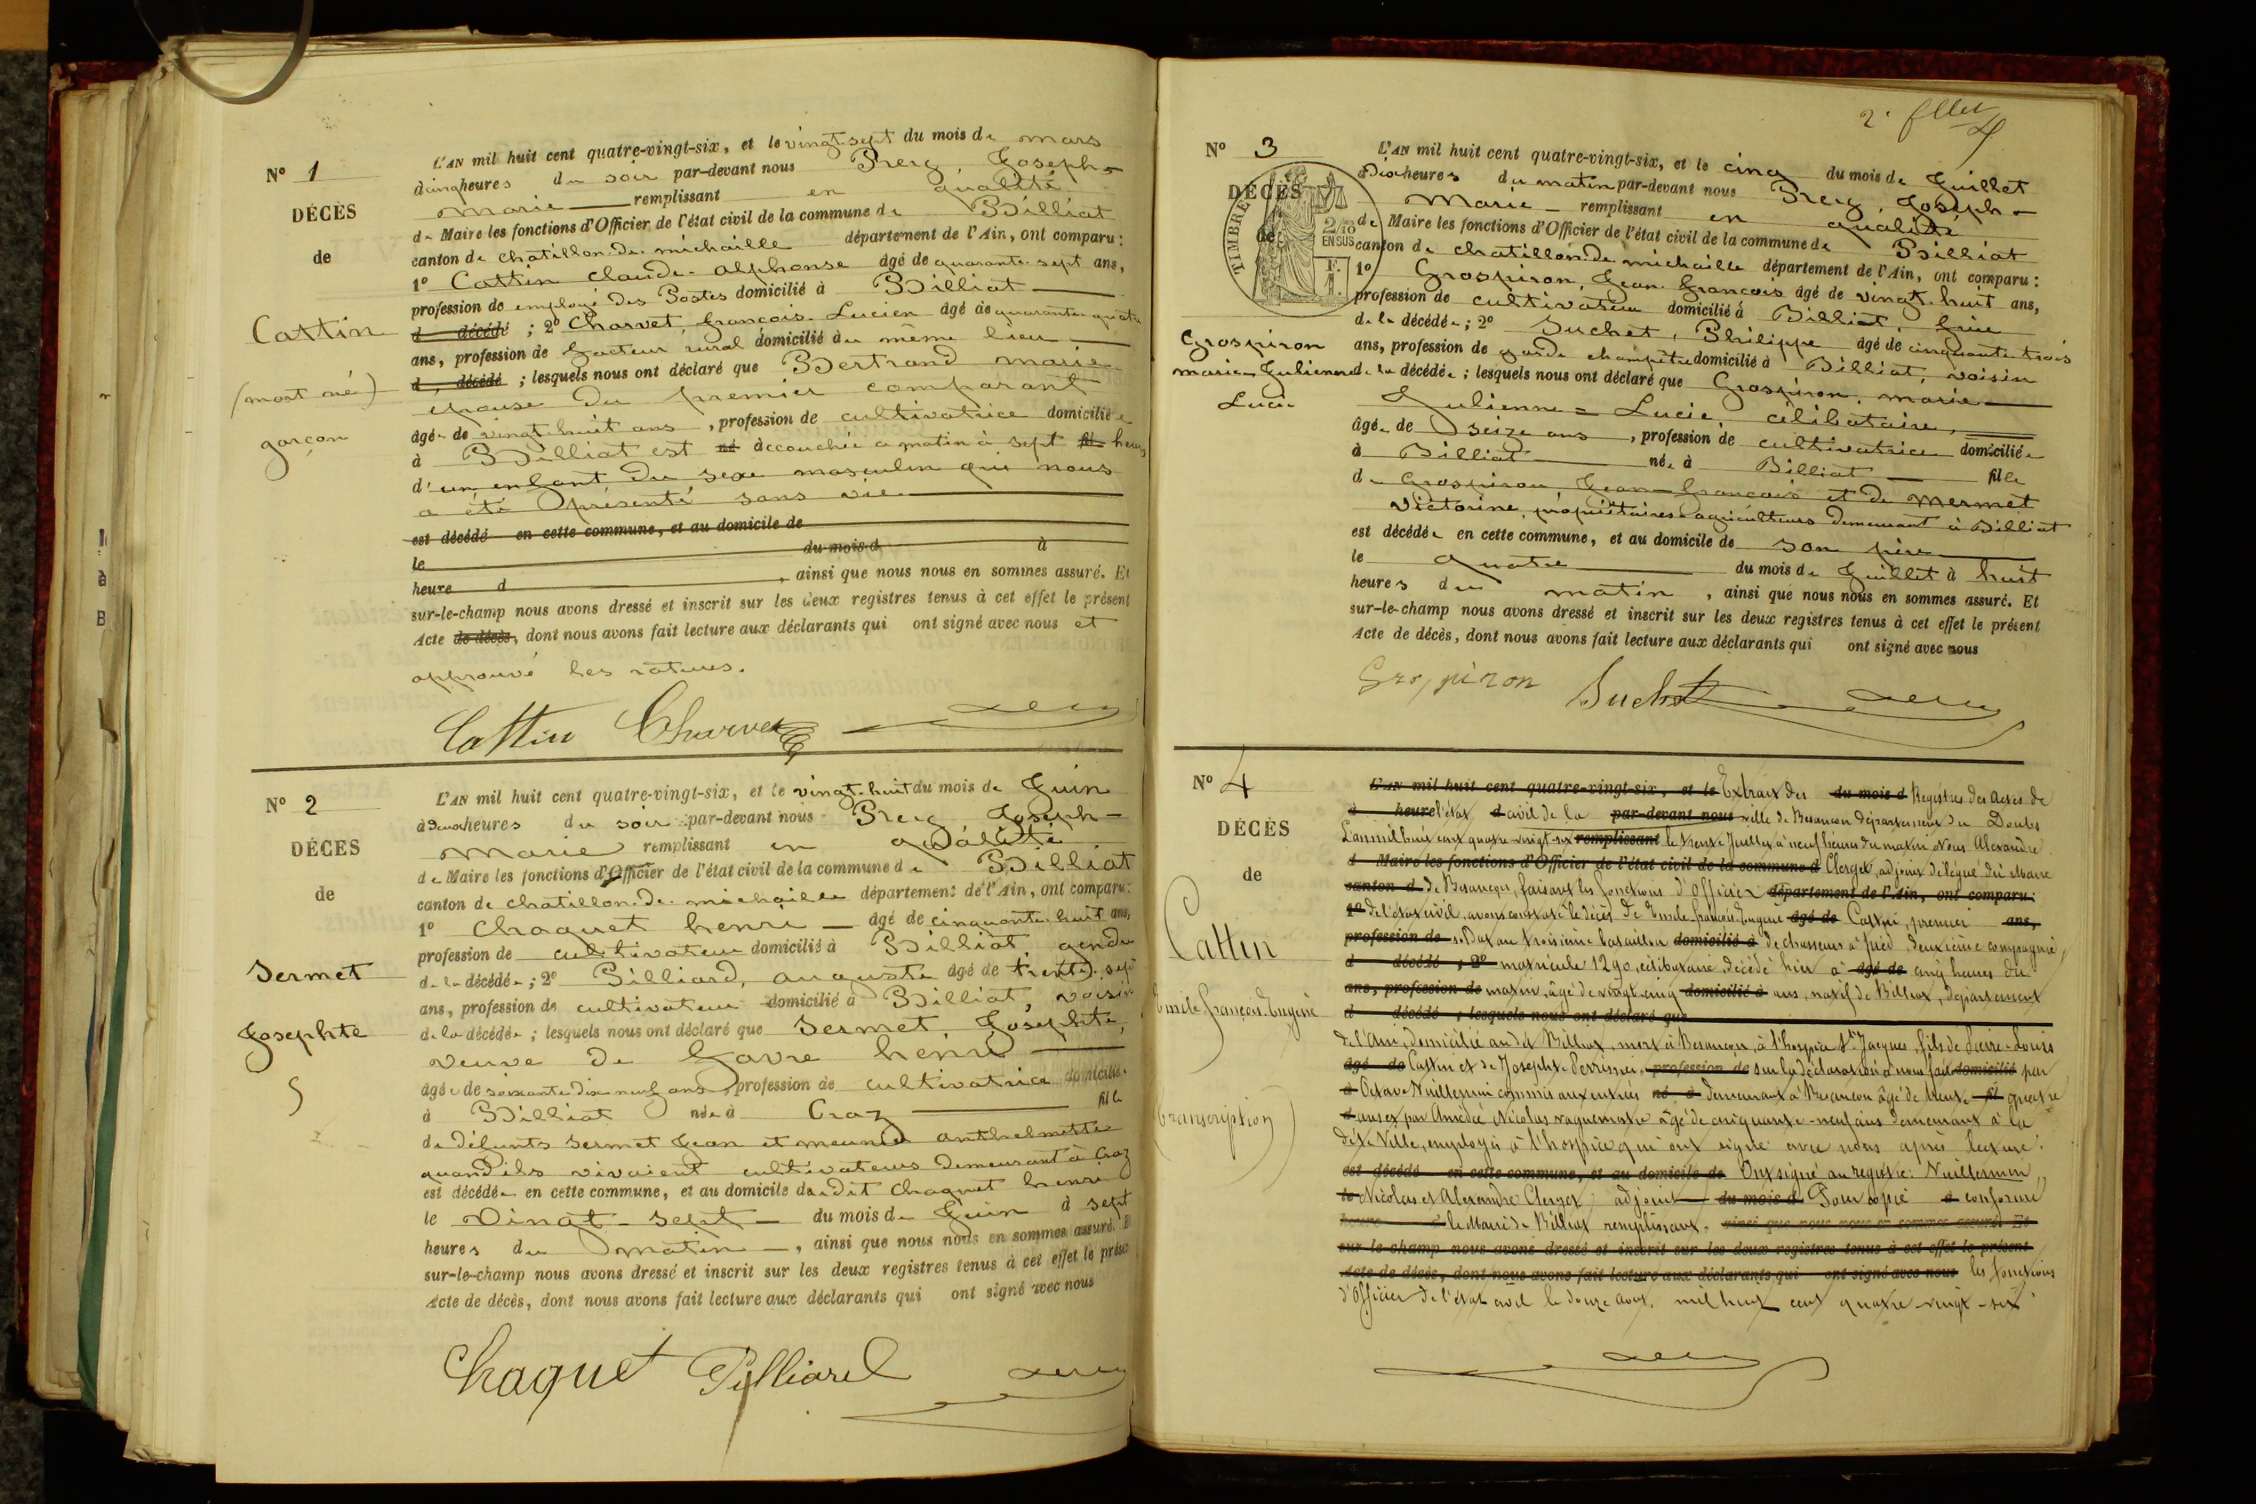 N° 1
DÉCÈS
de
Cattin
(mort né)
garçon
L'AN mil huit cent quatre-vingt-six, et le vingt-sept du mois de mars
à cinq heures du soir par-devant nous Prery Joseph-
Marie remplissant en qualité
de Maire les fonctions d'Officier de l'état civil de la commune de Billiat
canton de chatillon-de-michaille département de l'Ain, ont comparu :
1° Cattin claude-alphonse âgé de quarante-sept ans,
profession de employé des Postes domicilié à Billiat
d décédé ; 2° Charvet, françois-Lucien âgé de quarante-quatre
ans, profession de facteur rural domicilié du même lieu
d décédé ; lesquels nous ont déclaré que Bertrand marie
épouse du premier comparant
âgée de vingt-huit ans, profession de cultivatrice domiciliée
à Billiat est né accouchée ce matin à sept fil heures
d'un enfant du sexe masculin qui nous
a été présenté sans vie
est décédé en cette commune, et au domicile de
le du mois d à
heure d , ainsi que nous nous en sommes assuré. Et
sur-le-champ nous avons dressé et inscrit sur les deux registres tenus à cet effet le présent
Acte de décès, dont nous avons fait lecture aux déclarants qui ont signé avec nous et
approuvé les ratures.
Cattin Charvet
N° 2
DÉCÈS
de
Sermet
Josephte
L'AN mil huit cent quatre-vingt-six, et le vingt-huit du mois de Juin
à deux heures du soir par-devant nous Prery Joseph-
Marie remplissant en qualité
de Maire les fonctions d'Officier de l'état civil de la commune de Billiat
canton de chatillon-de-michaille département de l'Ain, ont comparu :
1° Chaquet henri âgé de cinquante-huit ans,
profession de cultivateur domicilié à Billiat, gendre
de la décédée ; 2° Billiard, auguste âgé de trente-sept
ans, profession de cultivateur domicilié à Billiat, voisin
de la décédée ; lesquels nous ont déclaré que Sermet, Josephte,
veuve de favre henri
âgée de soixante-dix-neuf ans, profession de cultivatrice domiciliée
à Billiat née à Craz fille
de défunts Sermet Jean et meunier anthelmette
quand ils vivaient cultivateurs demeurant à Craz
est décédée en cette commune, et au domicile du dit Chaquet henri
le Vingt-sept du mois de Juin à sept
heures du matin, ainsi que nous nous en sommes assuré. Et
sur-le-champ nous avons dressé et inscrit sur les deux registres tenus à cet effet le présent
Acte de décès, dont nous avons fait lecture aux déclarants qui ont signé avec nous
Chaquet Billiard
2e fllet
N° 3
DÉCÈS
de
TIMBRE
2/10
EN SUS
Grospiron
marie-Julienne
Lucie
L'AN mil huit cent quatre-vingt-six, et le cinq du mois de Juillet
à Dix heures du matin par-devant nous Prery, Joseph-
Marie remplissant en qualité
de Maire les fonctions d'Officier de l'état civil de la commune de Billiat
canton de chatillon-de-michaille département de l'Ain, ont comparu :
1° Grospiron, Jean-françois âgé de vingt-huit ans,
profession de cultivateur domicilié à Billiat, frère
de la décédée ; 2° Suchet, Philippe âgé de cinquante-trois
ans, profession de garde champêtre domicilié à Billiat, voisin
de la décédée ; lesquels nous ont déclaré que Grospiron, marie
Julienne = Lucie, célibataire,
âgée de seize ans, profession de cultivatrice domiciliée
à Billiat née à Billiat fille
de Grospiron Jean-françois et de mermet
victorine, propriétaires agriculteurs demeurant à Billiat
est décédée en cette commune, et au domicile de son père
le quatre du mois de Juillet à huit
heures du matin, ainsi que nous nous en sommes assuré. Et
sur-le-champ nous avons dressé et inscrit sur les deux registres tenus à cet effet le présent
Acte de décès, dont nous avons fait lecture aux déclarants qui ont signé avec nous
Grospiron Suchet
N° 4
DÉCÈS
de
Cattin
Emile françois-Eugène
(transcription)
L'AN mil huit cent quatre-vingt-six, et le Extrait des du mois d Registres des actes de
à heure l'état d civil de la par-devant nous ville de Besançon département du Doubs
L'an mil huit cent quatre-vingt-six remplissant le trente Juillet à neuf heures du matin Nous Alexandre
d Maire les fonctions d'Officier de l'état civil de la commune d Clerget, adjoint délégué du Maire
canton d de Besançon, faisant les fonctions d'Officier département de l'Ain, ont comparu :
1° de l'état civil, avons constaté le décès de Emile françois-Eugène âgé de Cattin, premier ans,
profession de soldat au troisième bataillon domicilié à de chasseurs à pied, deuxième compagnie,
d décédé ; 2° matricule 1290, célibataire, décédé hier à âgé de cinq heures du
ans, profession de matin, âgé de vingt-cinq domicilié à ans, natif de Billiat, département
d décédé ; lesquels nous ont déclaré que
de l'Ain, domicilié au dit Billiat, mort à Besançon, à l'hospice St Jacques, fils de Pierre-Louis
âgé de Cattin et de Josephte Perrissin. profession de sur la déclaration à nous faite domicilié par
à Octave Nuillermin commis aux entrées né à demeurant à Besançon âgé de trente fil quatre
d ans et par Amédée Nicolas vaguemestre âgé de cinquante-neuf ans demeurant à la
dite Ville, employés à l'hospice qui ont signé avec nous après lecture.
est décédé en cette commune, et au domicile de Ont signé au registre : Nuillermin
le Nicolas et Alexandre Clerget adjoint du mois d Pour copie à conforme
heure d le Maire de Billiat remplissant. ainsi que nous nous en sommes assuré. Et
sur-le-champ nous avons dressé et inscrit sur les deux registres tenus à cet effet le présent
Acte de décès, dont nous avons fait lecture aux déclarants qui ont signé avec nous les fonctions
d'Officier de l'état civil le douze août, mil huit cent quatre-vingt-six.